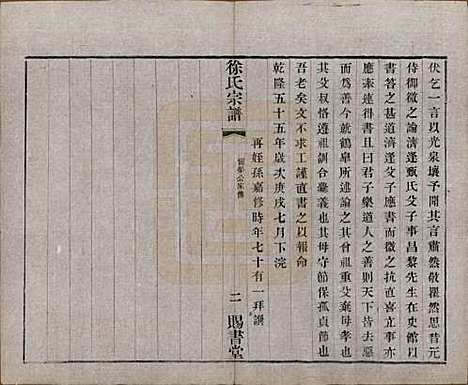 伏乞一言以光泉壤予開其言肅然敬瞿然思昔元
侍御微之論濟逢甄氏父子事昌黎先生在史館以
書答之甚道濟逢父子應書而微之抗直喜立事亦
應赤得書且曰君子樂道人之善則天下皆去惡
而為善今就鶴皋所述論之其曾祖重交棄母孝
其父叔恪遵祖訓合彝義也其母守節保孤貞節也
吾老矣文不求工謹直書之以報命
乾隆五十五年歲次庚戌七月下浣
再姪孫嘉修時年七十有一拜譔
徐氏宗譜
二
賜書堂